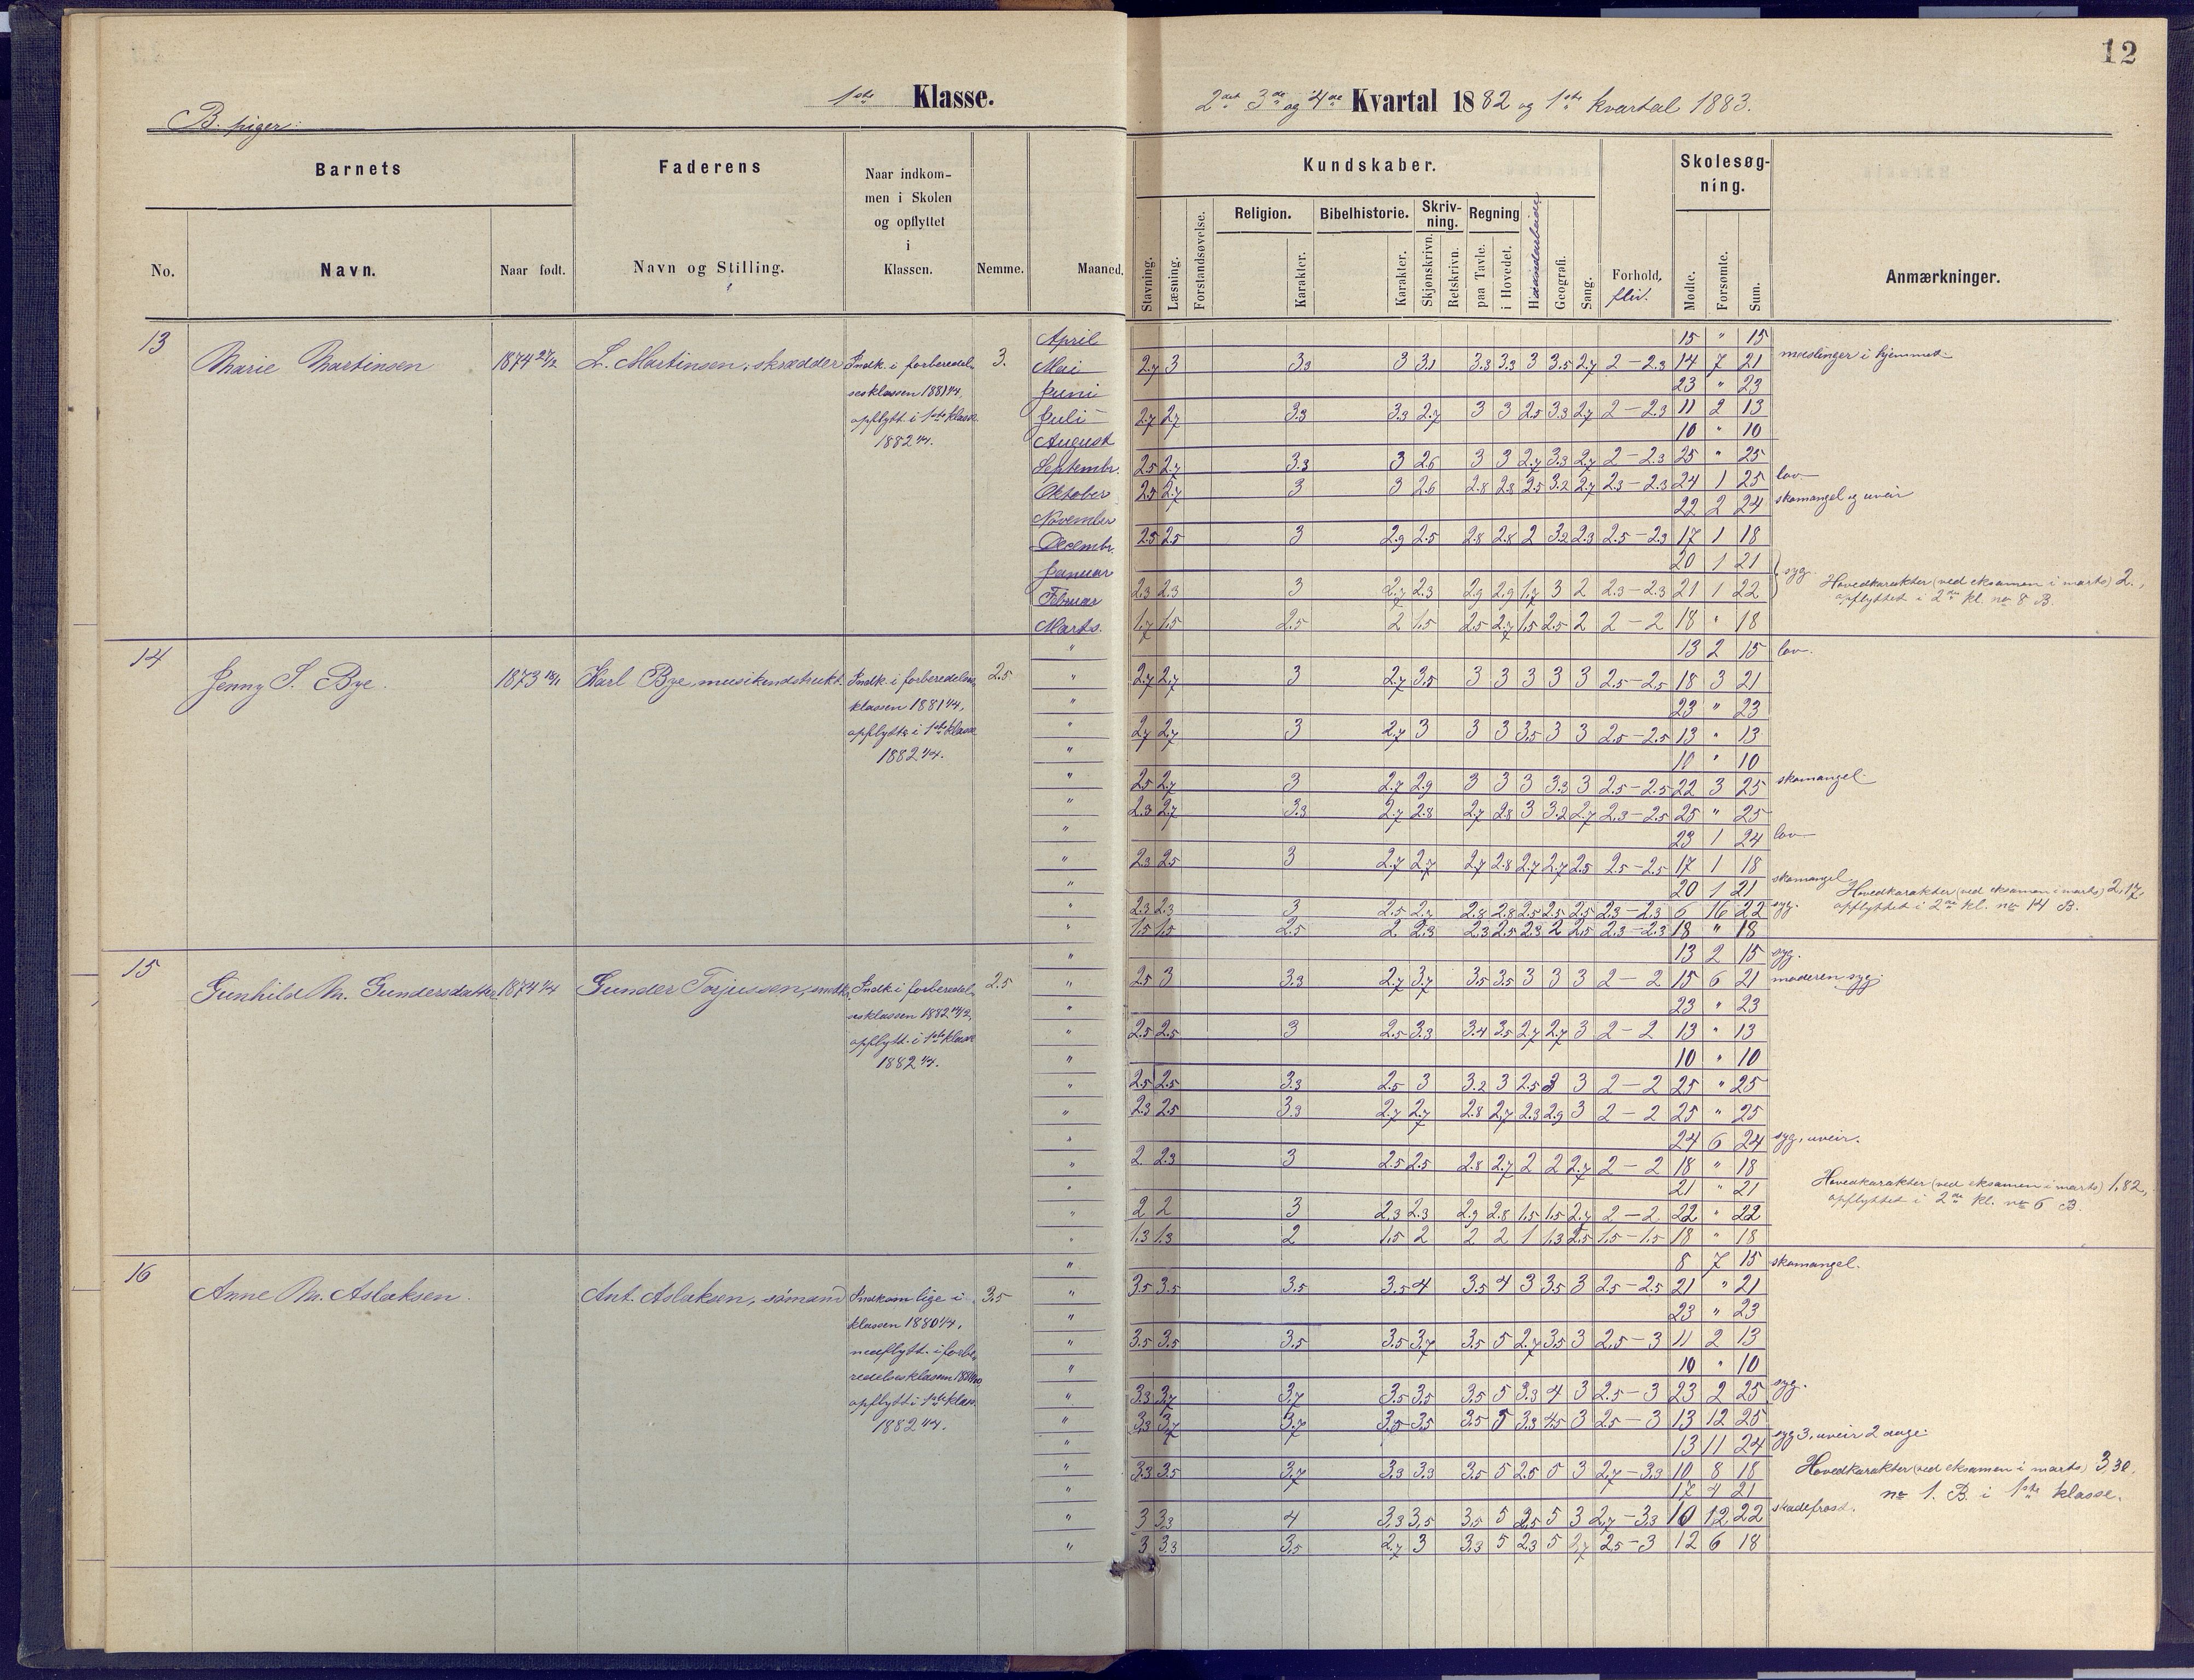 12
B. piger:
1ste Klasse.
2det 3de og 4de Kvartal 1882 og 1ste kvartal 1883.
Barnets
Faderens
Naar indkom-
men i Skolen
og opflyttet
i
Klassen.
No.
Navn.
Naar født.
Navn og Stilling.
Nemme.
Maaned.
Kundskaber.
Skolesøg-
ning.
Stavning.
Læsning.
Forstandsøvelse.
Religion.
Karakter.
Bibelhistorie.
Karakter.
Skriv-
ning.
Skjønskrivn.
Retskrivn.
Regning
paa Tavle.
i Hovedet.
Haandarbeide
Geografi.
Sang.
Forhold,
flid.
Mødte.
Forsømte.
Sum.
Anmærkninger.
13
Marie Martinsen
1874 27/2
L. Martinsen, skrædder
Indk. i forberedel-
sesklassen 1881 1/4,
opflytt. i 1ste klasse
1882 1/4.
3.
April 15 " 15
Mai 2.7 3 3.3 3 3.1 3.3 3.3 3 3.5 2.7 2 – 2.3 14 7 21 mæslinger i hjemmet
Juni 23 " 23
Juli 2.7 2.7 3.3 3.3 2.7 3 3 2.5 3.3 2.7 2 – 2.3 11 2 13
August 10 " 10
Septembr. 2.5 2.7 3.3 3 2.6 3 3 2.7 3.3 2.7 2 – 2.3 25 " 25
Oktober 2.5 2.7 3 3 2.6 2.8 2.8 2.5 3.2 2.7 2.3 – 2.3 24 1 25 lov
November 22 2 24 skomangel og uveir
Decembr. 2.5 2.5 3 2.9 2.5 2.8 2.8 2 3.2 2.3 2.5 – 2.3 17 1 18
Januar 20 1 21 syg.
Februar 2.3 2.3 3 2.7 2.3 2.9 2.9 1.7 3 2 2.3 – 2.3 21 1 22 Hovedkarakter (ved eksamen i marts) 2.,
opflyttet i 2den kl. no 8 B.
Marts. 1.7 1.5 2.5 2 1.5 2.5 2.7 1.5 2.5 2 2 – 2 18 " 18
14
Jenny S. Bye.
1873 18/1
Karl Bye, musikindstrukt.
Indk. i forberedelses
klassen 1881 1/4,
opflytt. i 1ste klasse
1882 1/4.
2.5
" 13 2 15 lov.
" 2.7 2.7 3 2.7 3.5 3 3 3 3 3 2.5 – 2.5 18 3 21
" 23 " 23
" 2.7 2.7 3 2.7 3 3 3 3.5 3 3 2.5 – 2.5 13 " 13
" 10 " 10
" 2.5 2.7 3 2.7 2.9 3 3 3 3.3 3 2.5 – 2.5 22 3 25 skomangel
" 2.3 2.7 3.3 2.7 2.8 2.7 2.8 3 3.2 2.7 2.3 – 2.5 25 " 25
" 23 1 24 lov
" 2.3 2.5 3 2.7 2.7 2.7 2.8 2.7 2.7 2.5 2.5 – 2.5 17 1 18
" 20 1 21 skomangel
" 2.3 2.3 3 2.5 2.7 2.8 2.8 2.5 2.5 2.5 2.3 – 2.3 6 16 22 syg. Hovedkarakter (ved eksamen i marts) 2,17,
opflyttet i 2den kl. no 14 B.
" 1.5 1.5 2.5 2 2.3 2.3 2.5 2.3 2 2.5 2.3 – 2.3 18 " 18
15
Gunhild M. Gundersdatter
1874 1/4
Gunder Torjussen, smed
Indk. i forberedel-
sesklassen 1882
opflytt. i 1ste klasse
1882 1/4.
2.5
" 13 2 15 syg.
" 2.5 3 3.3 2.7 3.7 3.5 3.5 3 3 3 2 – 2 15 6 21 moderen syg.
" 23 " 23
" 2.5 2.5 3 2.5 3.3 3.4 3.5 2.7 2.7 3 2 – 2 13 " 13
" 10 " 10
" 2.5 2.5 3.3 2.5 3 3.2 3 2.5 3 3 2 – 2 25 " 25
" 2.3 2.5 3.3 2.7 2.7 2.8 2.7 2.3 2.9 3 2 – 2 25 " 25
" 24 6 24 syg, uveir.
" 2 2.3 3 2.5 2.5 2.8 2.7 2 2 2.7 2 – 2 18 " 18
" 21 " 21 Hovedkarakter (ved eksamen i marts) 1,82,
opflyttet i 2den kl. no 6 B.
" 2 2 3 2.3 2.3 2.9 2.8 1.5 1.5 2.7 2 – 2 22 " 22
" 1.3 1.3 2 1.5 2 2 2 1 1.3 2.5 1.5 – 1.5 18 " 18
16
Anne M. Aslaksen.
Ant. Aslaksen, sømand
Indkom lige i
klassen 1880 1/4,
nedflytt. i forbe-
redelsesklassen
opflytt i 1ste klas.
1882 1/4.
3.5
" 8 7 15 skomangel.
" 3.5 3.5 3.5 3.5 4 3.5 4 3 3.5 3 2.5 – 2.5 21 " 21
" 23 " 23
" 3.5 3.5 3.5 3.5 3.7 3.5 5 2.7 3.5 3 2.5 – 3 11 2 13
" 10 " 10
" 3.3 3.7 3.7 3.5 3.5 3.5 5 3.3 4 3 2.5 – 3 23 2 25 syg.
" 3.3 3.7 3.7 3.5 3.5 3.5 5 3.3 4.5 3 2.5 – 3 13 12 25
" 13 11 24 syg 3, uveir 2 dage.
" 3.3 3.5 3.7 3.3 3.3 3.5 5 2.5 5 3 2.7 – 3.3 10 8 18 Hovedkarakter (ved eksamen i marts) 3,30,
" 17 4 21 no 1. B. i 1ste klasse.
" 3 3.3 4 3.3 3.5 3.5 5 2.5 5 3 2.7 – 3.3 10 12 22 skadefrost.
" 3 3.3 3.5 2.7 3 3.3 5 2.3 5 2.7 2.5 – 3 12 6 18